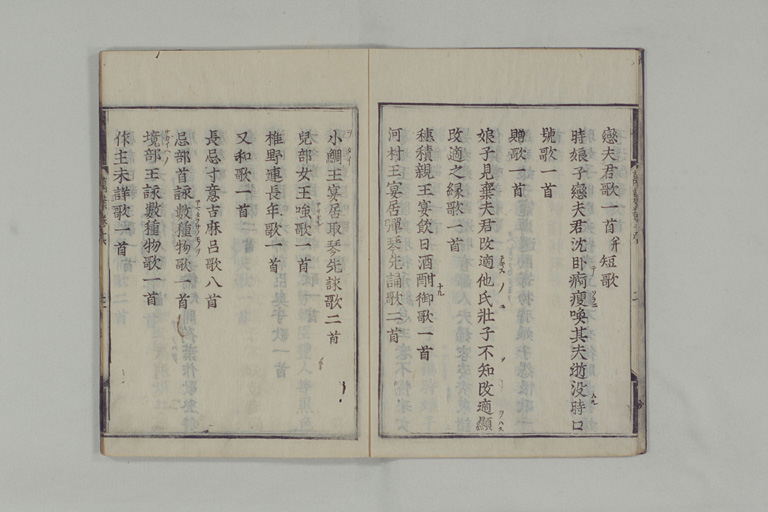 戀夫君歌一首并短歌
時娘子戀夫君沈臥痾瘦喚其夫逝沒時口
號歌一首
贈歌一首
娘子見棄夫君改適他氏壯子不知改適顯
改適之緣歌一首
穗積親王宴飲日酒酣御歌一首
河村王宴居彈琴先誦歌二首
小鯛王宴居取琴先詠歌二首
兒部女王嗤歌一首
椎野連長年歌一首
又和歌一首
長忌寸意吉麻呂歌八首
忌部首詠數種物歌一首
境部王詠數種物歌一首
作主未詳歌一首